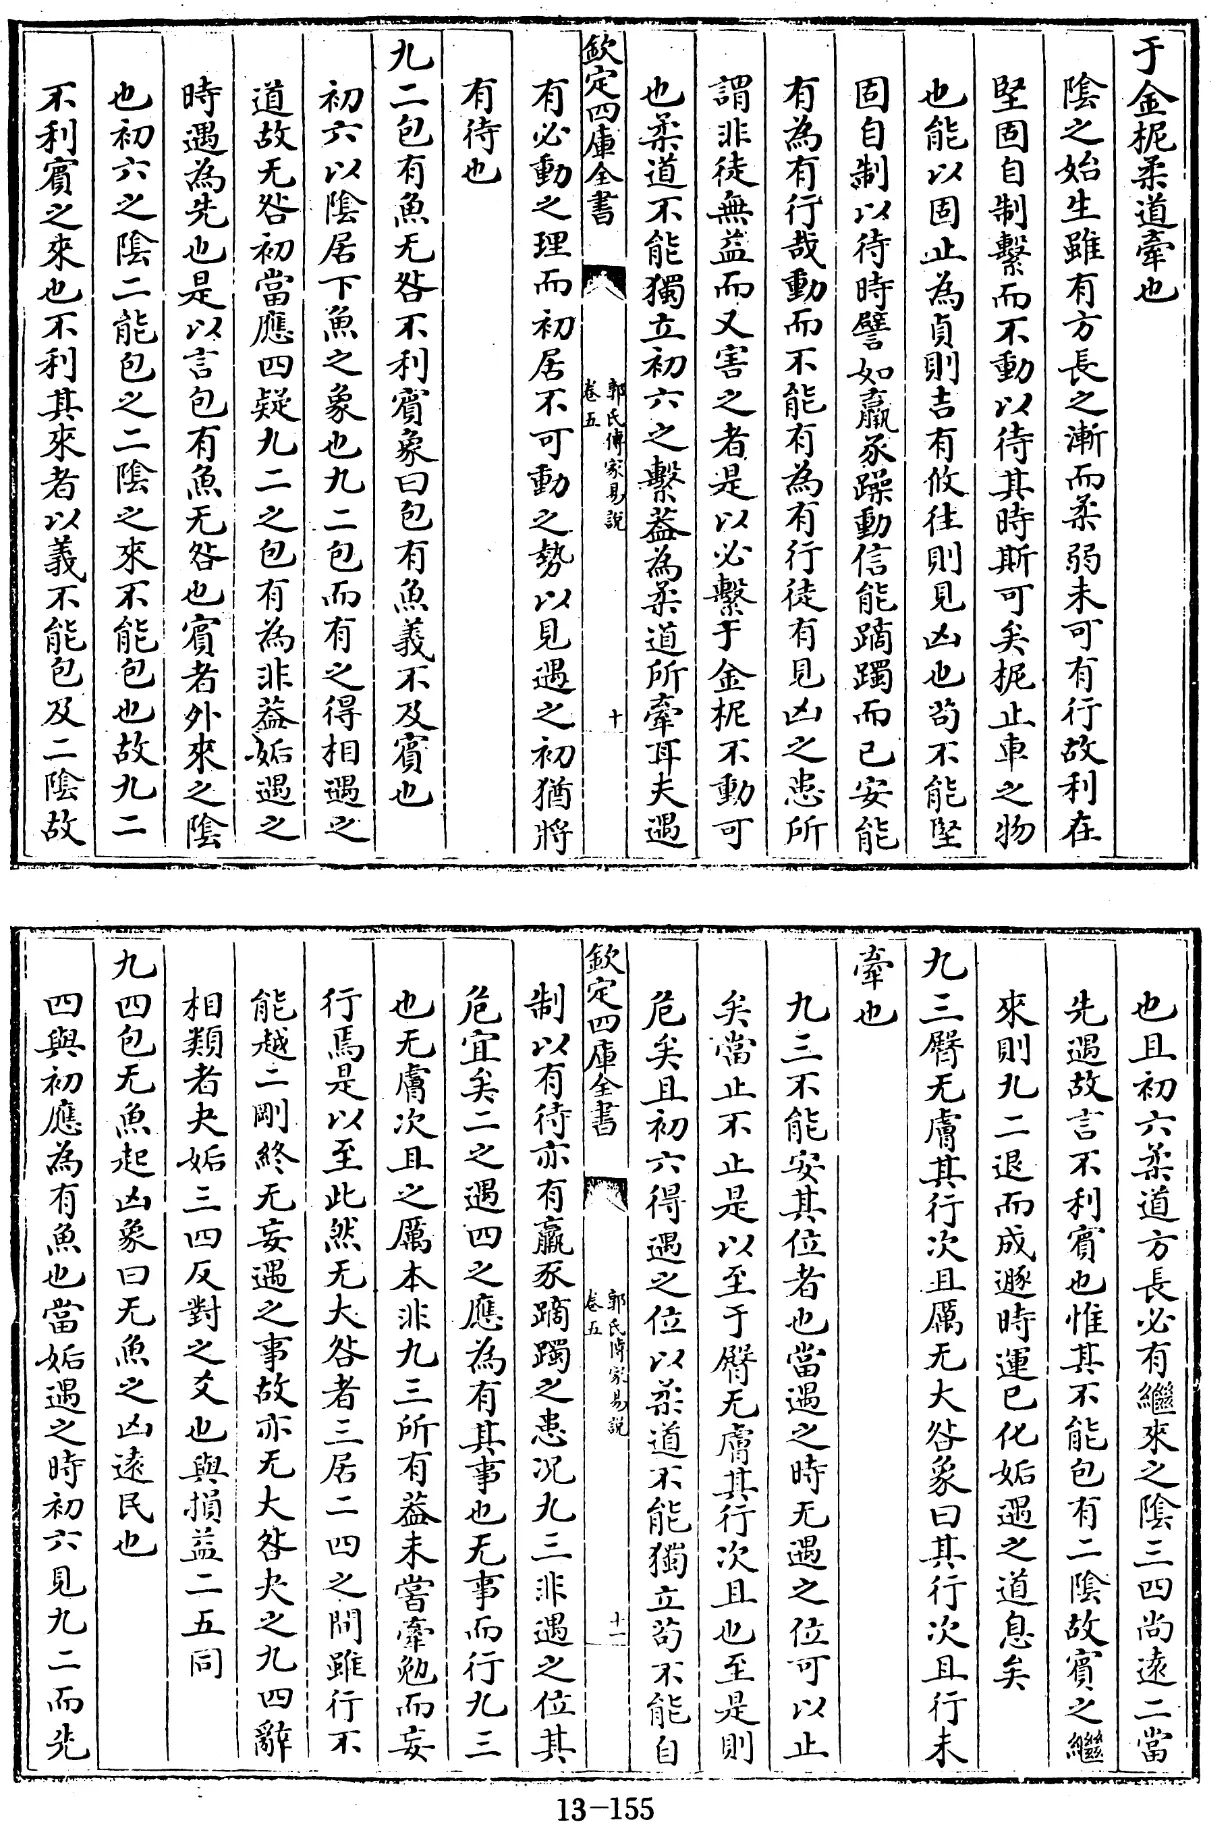 于金柅柔道牽也
陰之始生雖有方長之漸而柔弱未可有行故利在
堅固自制繫而不動以待其時斯可矣柅止車之物
也能以固止為貞則吉有攸往則見凶也茍不能堅
固自制以待時譬如羸豕躁動信能蹢躅而已安能
有為有行哉動而不能有為有行徒有見凶之患所
謂非徒無益而又害之者是以必繫于金柅不動可
也柔道不能獨立初六之繫蓋為柔道所牽耳夫遇
欽定四庫全書
郭氏傳家易說
卷五
十
有必動之理而初居不可動之勢以見遇之初猶將
有待也
九二包有魚无咎不利賓象曰包有魚義不及賓也
初六以陰居下魚之象也九二包而有之得相遇之
道故无咎初當應四疑九二之包有為非蓋姤遇之
時遇為先也是以言包有魚无咎也賓者外來之陰
也初六之陰二能包之二陰之來不能包也故九二
不利賓之來也不利其來者以義不能包及二陰故
也且初六柔道方長必有繼來之陰三四尚遠二當
先遇故言不利賓也惟其不能包有二陰故賓之繼
來則九二退而成遯時運已化姤遇之道息矣
九三臀无膚其行次且厲无大咎象曰其行次且行未
牽也
九三不能安其位者也當遇之時无遇之位可以止
矣當止不止是以至于臀无膚其行次且也至是則
危矣且初六得遇之位以柔道不能獨立茍不能自
欽定四庫全書
郭氏傳家易說
卷五
十一
制以有待亦有羸豕蹢躅之患况九三非遇之位其
危宜矣二之遇四之應為有其事也无事而行九三
也无膚次且之厲本非九三所有蓋未嘗牽勉而妄
行焉是以至此然无大咎者三居二四之間雖行不
能越二剛終无妄遇之事故亦无大咎夬之九四辭
相類者夬姤三四反對之爻也與損益二五同
九四包无魚起凶象曰无魚之凶遠民也
四與初應為有魚也當姤遇之時初六見九二而先
13-155